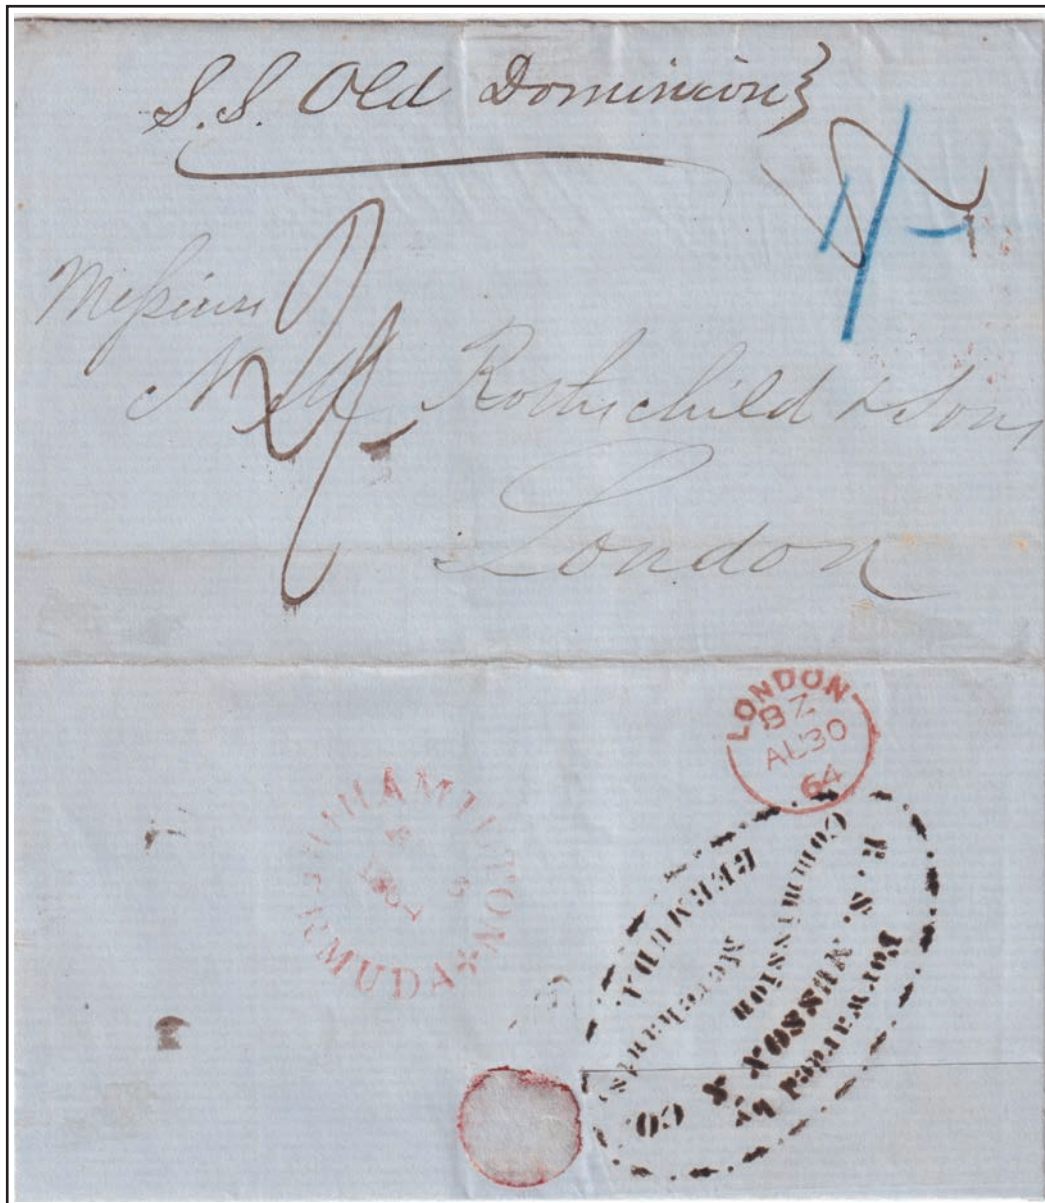 S.S. Old Dominion}
1/-
Messieurs
N M Rothschild & Sons
London
LONDON
BZ
AU 30
64
HAMILTON
1864
BERMUDA
Forwarded by
R. S. MUSSON & CO.
Commission
Merchants,
BERMUDA.